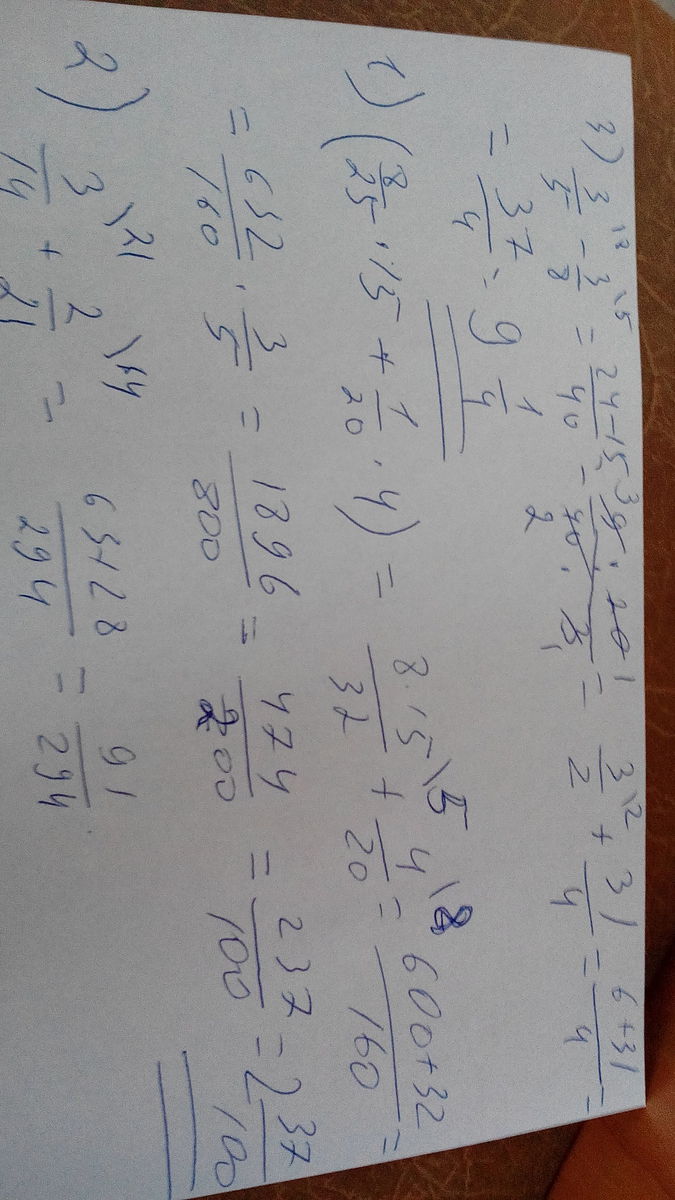 3) 3/5 \12 - 3/8 \5 = 24-15/40 = 9 3/40 2 · 20 1/3 1 = 3/2 \2 + 31/4 = 6+31/4 =
= 37/4 = 9 1/4
1) (8/25 · 15 + 1/20 · 4) = 8·15/32 \5 + 4/20 \8 = 600+32/160 =
= 632/160 · 3/5 = 1896/800 = 474/200 = 237/100 = 2 37/100
2) 3/14 \21 + 2/21 \14 = 63+28/294 = 91/294